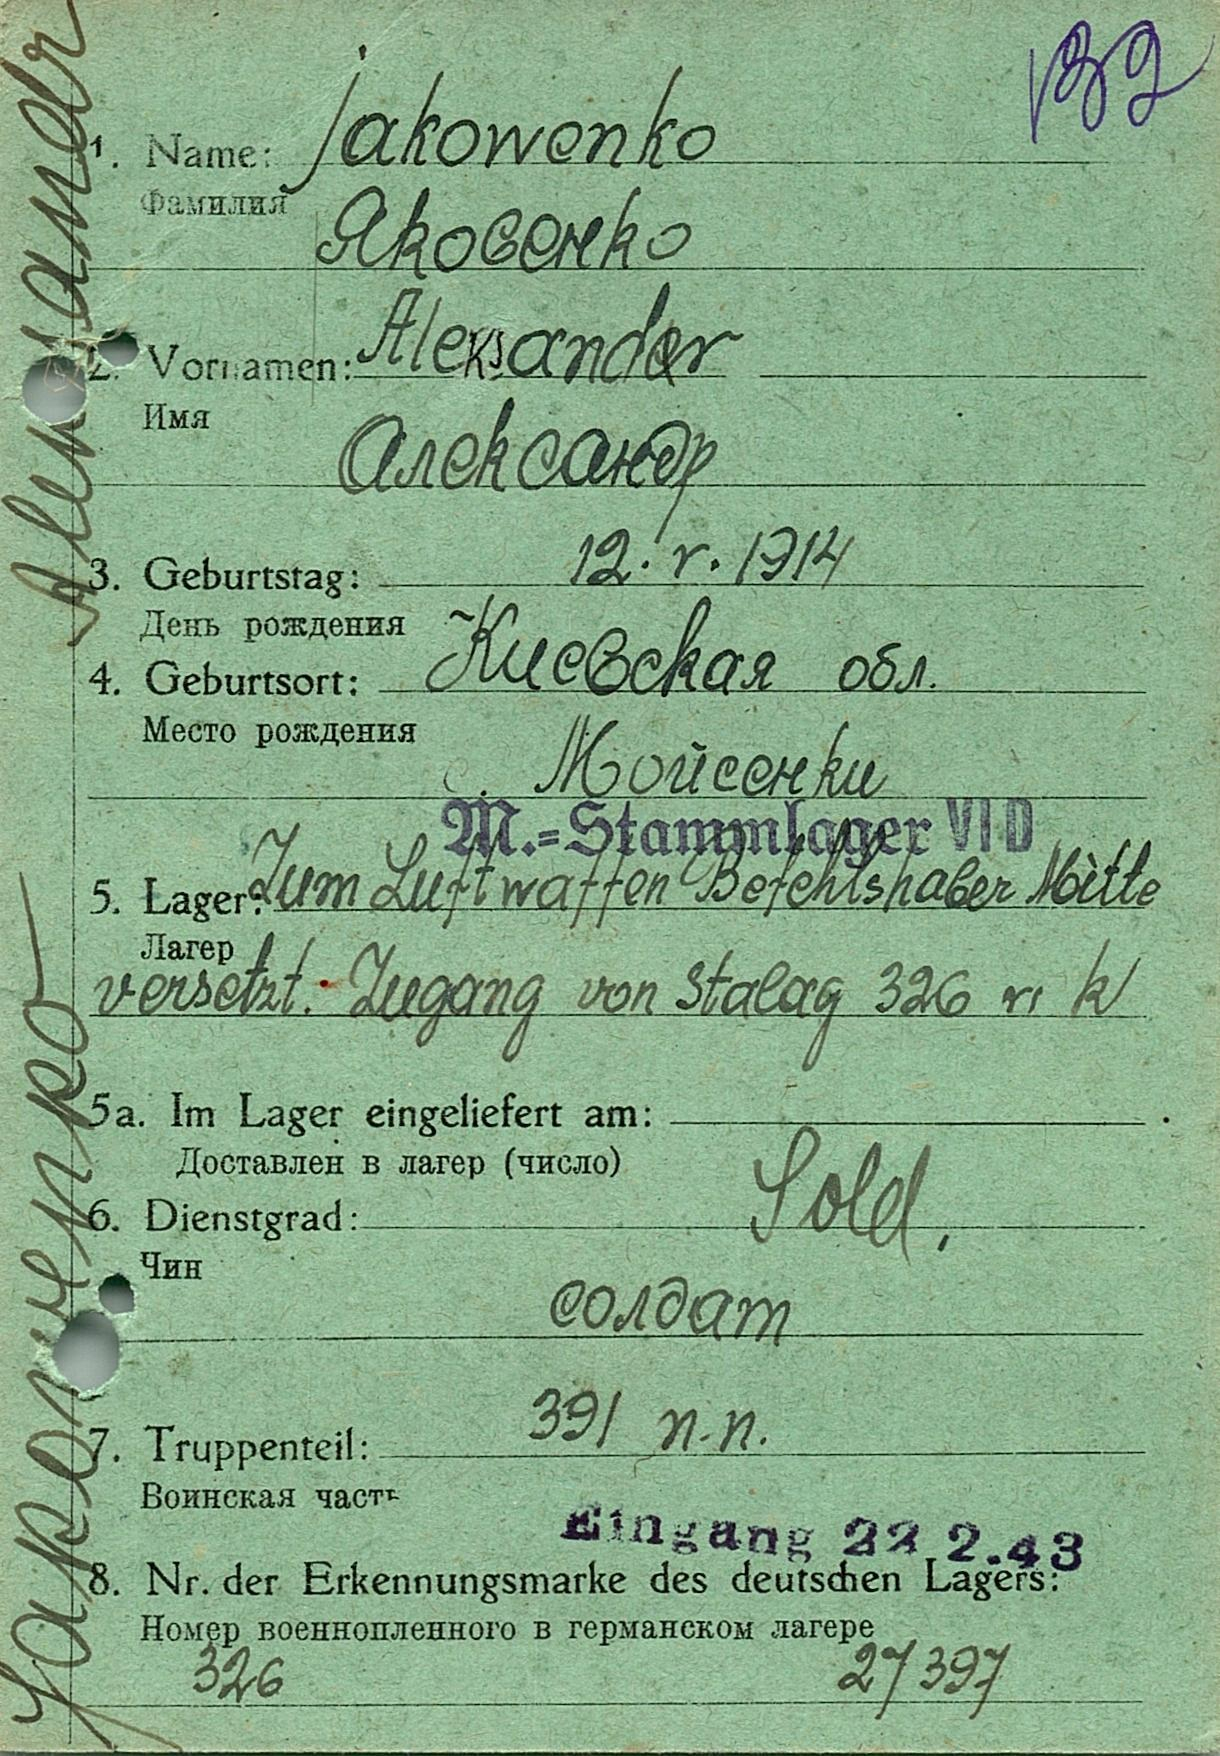 139
1. Name: Jakowenko
Фамилия
Яковенко
2. Vornamen: Aleksander
Имя
Александр
3. Geburtstag: 12. V. 1914
День рождения
4. Geburtsort: Киевская обл.
Место рождения
с. Мойсенки
M.=Stammlager VI D
5. Lager: Zum Luftwaffen Befehlshaber Mitte
Лагер
versetzt. Zugang von Stalag 326 VI K
5a. Im Lager eingeliefert am:
Доставлен в лагер (число)
6. Dienstgrad: Sold.
Чин
солдат
7. Truppenteil: 391 п.п.
Воинская часть
Eingang 22 2.43
8. Nr. der Erkennungsmarke des deutschen Lagers:
Номер военнопленного в германском лагере
326 27397
Jakowenko Aleksander